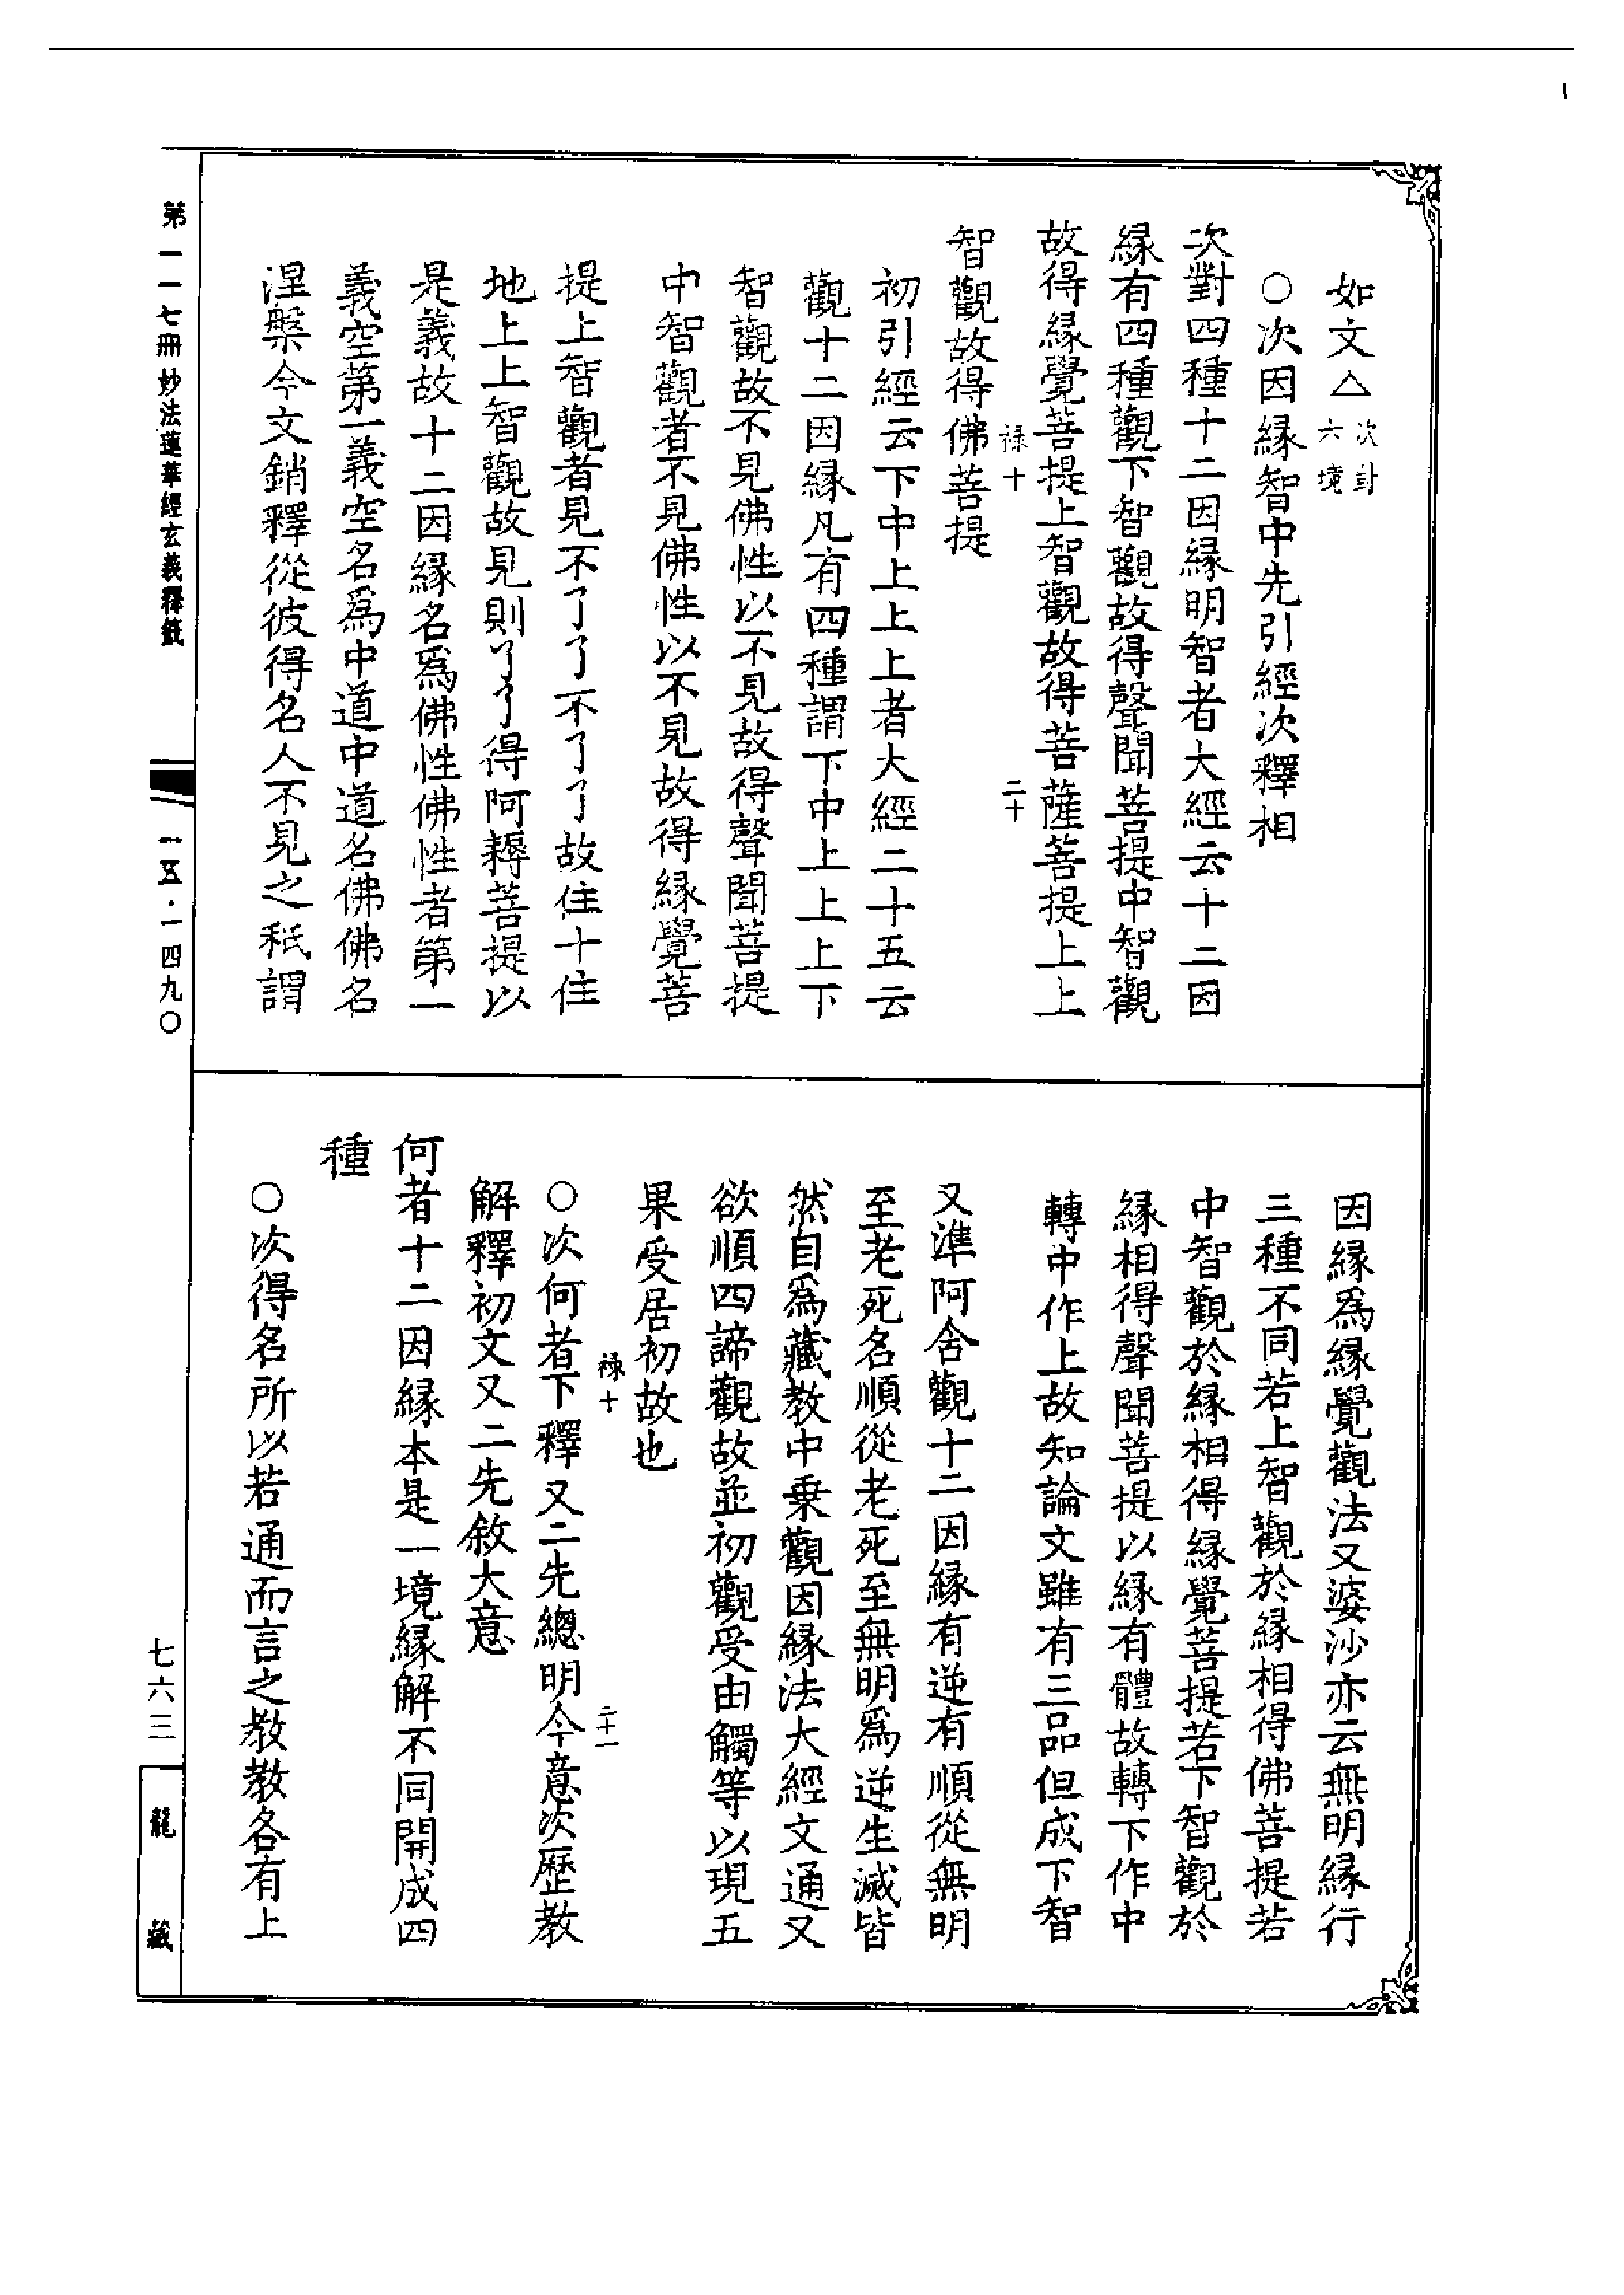 如文△次對六境
○次因緣智中先引經次釋相
次對四種十二因緣明智者大經云十二因
緣有四種觀下智觀故得聲聞菩提中智觀
故得緣覺菩提上智觀故得菩薩菩提上上
祿十 二十
智觀故得佛菩提
初引經云下中上上上者大經二十五云
觀十二因緣凡有四種謂下中上上上下
智觀故不見佛性以不見故得聲聞菩提
中智觀者不見佛性以不見故得緣覺菩
提上智觀者見不了了不了了故住十住
地上上智觀故見則了了得阿耨菩提以
是義故十二因緣名爲佛性佛性者第一
義空第一義空名爲中道中道名佛佛名
涅槃今文銷釋從彼得名人不見之秖謂
因緣爲緣覺觀法又婆沙亦云無明緣行
三種不同若上智觀於緣相得佛菩提若
中智觀於緣相得緣覺菩提若下智觀於
緣相得聲聞菩提以緣有體故轉下作中
轉中作上故知論文雖有三品但成下智
又準阿含觀十二因緣有逆有順從無明
至老死名順從老死至無明爲逆生滅皆
然自爲藏教中乘觀因緣法大經文通又
欲順四諦觀故並初觀受由觸等以現五
果受居初故也
祿十 二十一
○次何者下釋又二先總明今意次歷教
解釋初文又二先敘大意
何者十二因緣本是一境緣解不同開成四
種
○次得名所以若通而言之教教各有上
第一一七冊 妙法蓮華經玄義釋籤 一五·一四九〇 七六三 龍藏